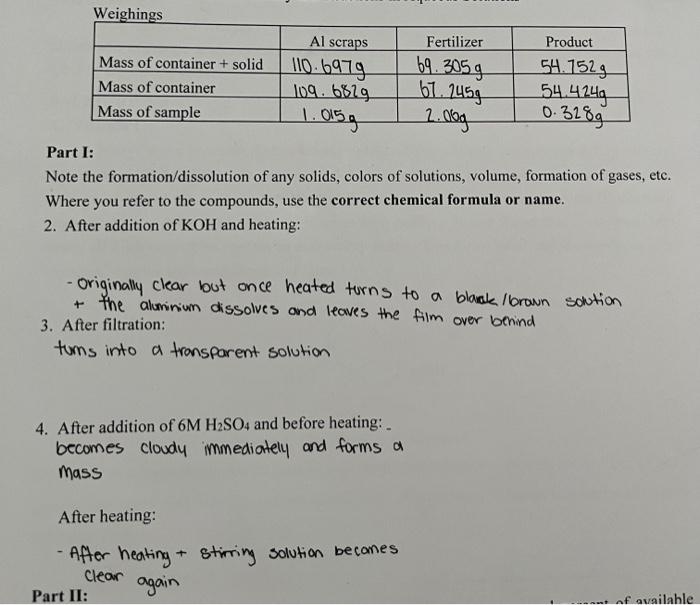 Weighings
Al scraps Fertilizer Product
Mass of container + solid 110.697g 69.305g 54.752g
Mass of container 109.682g 67.245g 54.424g
Mass of sample 1.015g 2.06g 0.328g
Part I:
Note the formation/dissolution of any solids, colors of solutions, volume, formation of gases, etc.
Where you refer to the compounds, use the correct chemical formula or name.
2. After addition of KOH and heating:
- Originally clear but once heated turns to a black/brown solution
+ the aluminium dissolves and leaves the film over behind
3. After filtration:
turns into a transparent solution
4. After addition of 6M H₂SO₄ and before heating:
becomes cloudy immediately and forms a
mass
After heating:
- After heating + stirring solution becomes
clear again
Part II:
of available